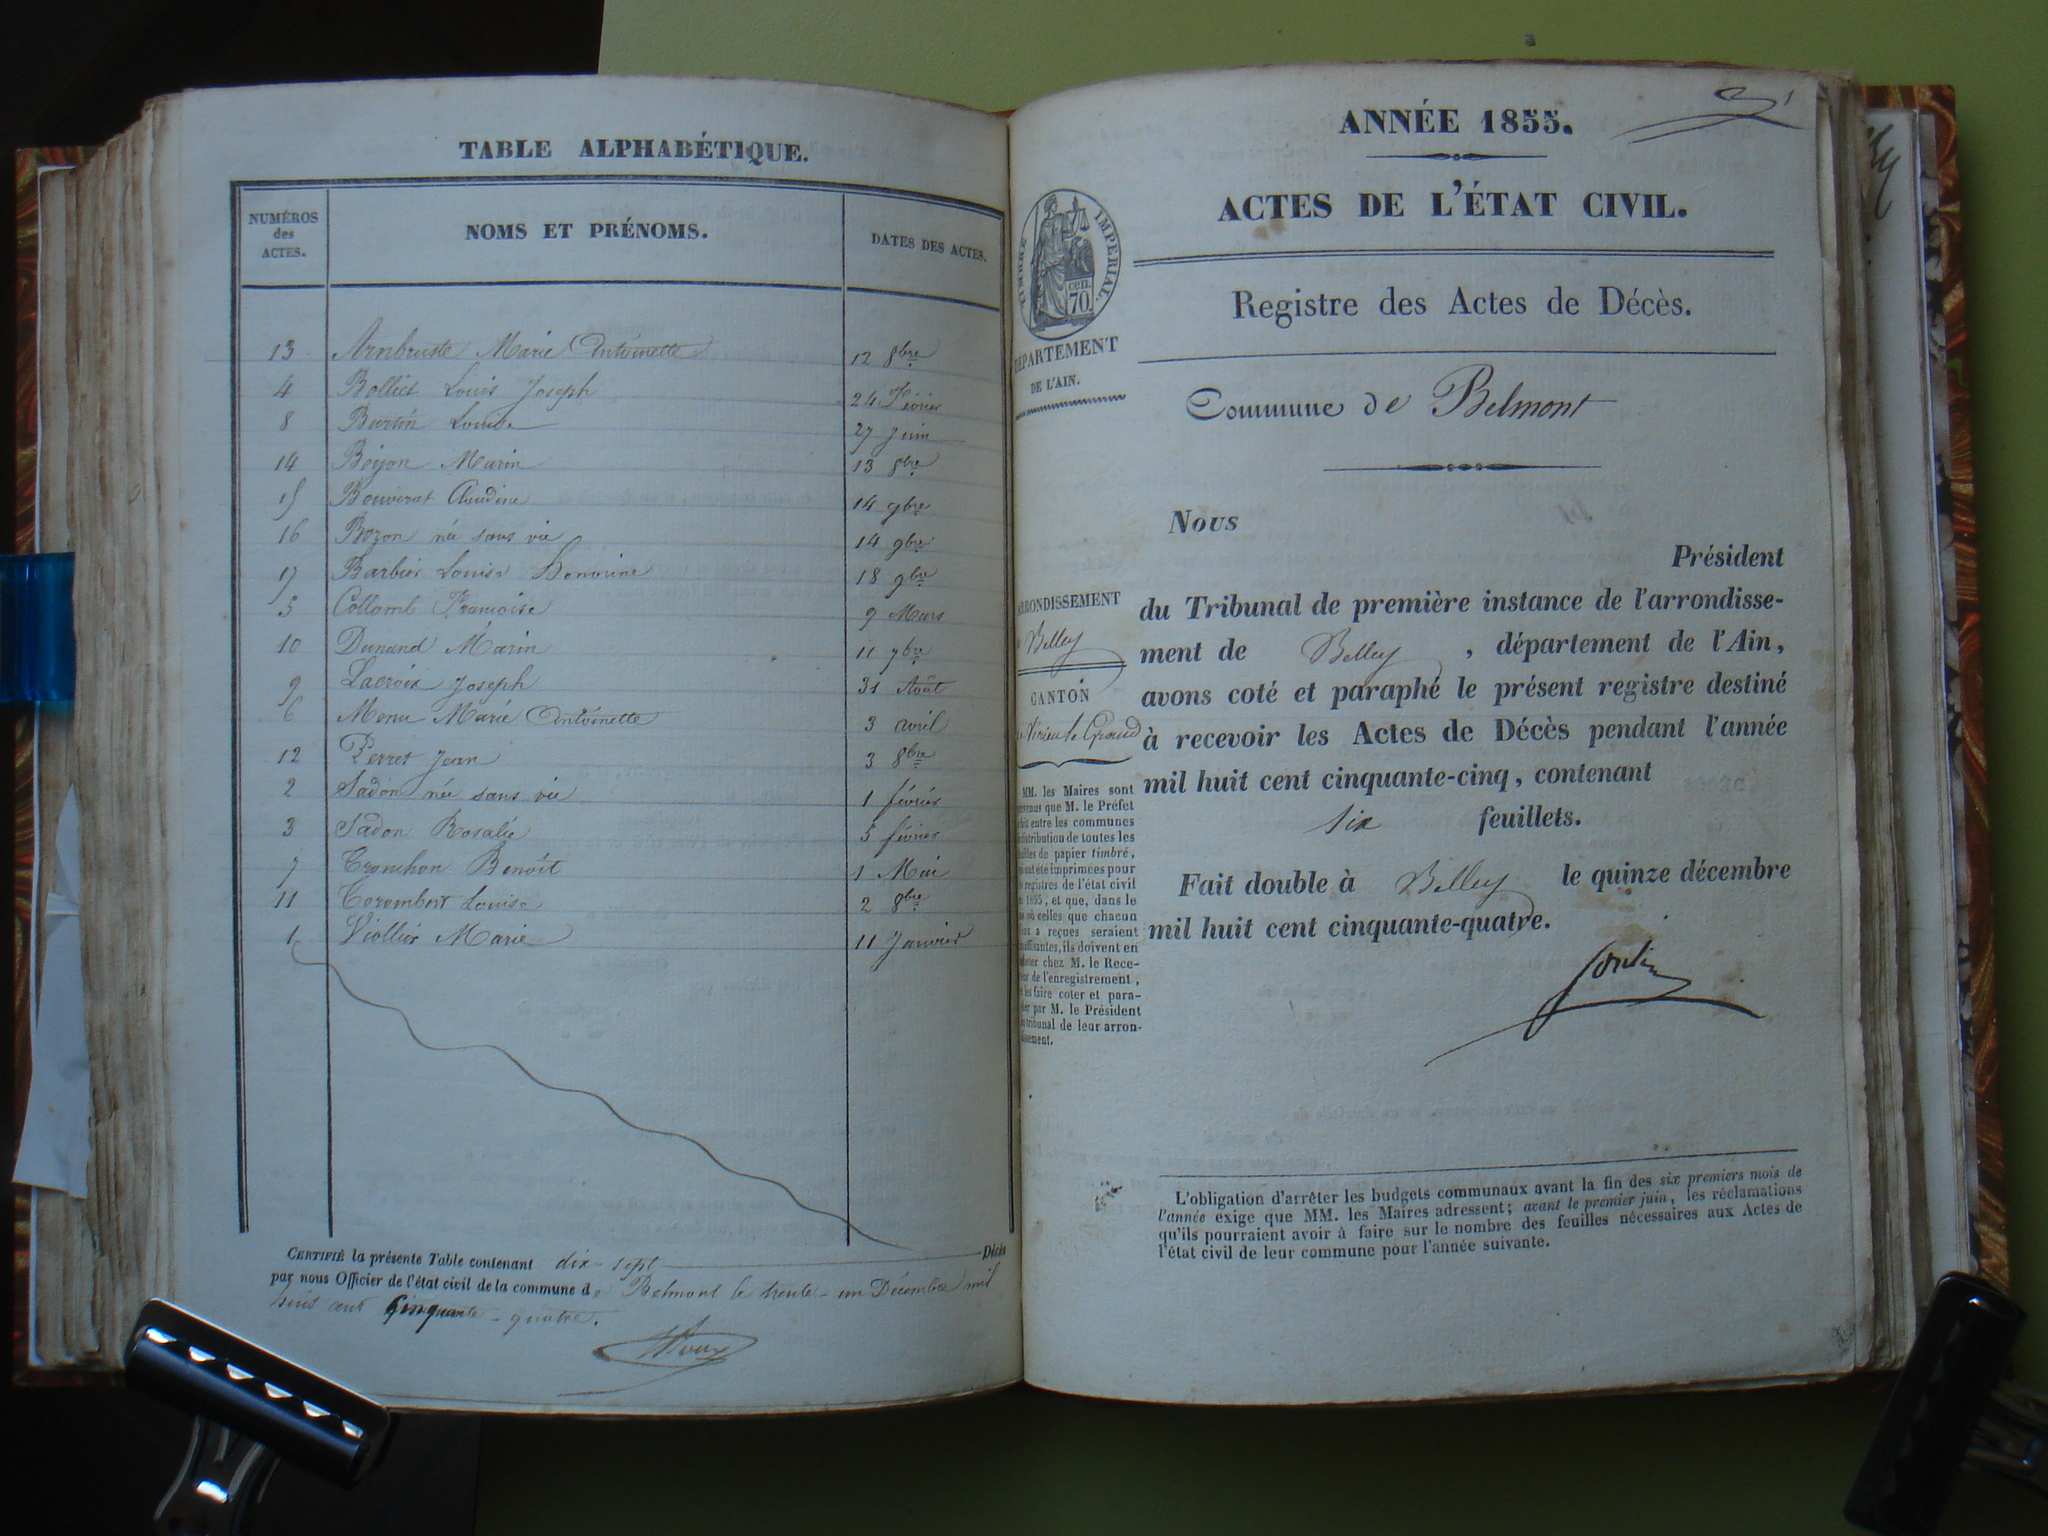 TABLE ALPHABÉTIQUE.
NUMÉROS des ACTES.
NOMS ET PRÉNOMS.
DATES DES ACTES.
13 Arnbruste Marie Antoinette 12 8bre
4 Bolliet Louis Joseph 24 Février
8 Burtin Louise 27 Juin
14 Boijon Marin 13 8bre
15 Bouverat Claudine 14 9bre
16 Bozon née sans vie 14 9bre
17 Barbier Louise Honorine 18 9bre
5 Collomb Françoise 9 Mars
10 Dunand Marin 11 7bre
9 Lacroix Joseph 31 Août
6 Menu Marie Antoinette 3 avril
12 Perret Jean 3 8bre
2 Sadon née sans vie 1 février
3 Sadon Rosalie 5 février
7 Tronchon Benoît 1 Mai
11 Corombert Louise 2 8bre
1 Viollier Marie 11 Janvier
CERTIFIÉ la présente Table contenant dix-sept Décès
par nous Officier de l'état civil de la commune de Belmont le trente-un Décembre mil
huit cent cinquante-quatre.
Roux
1
ANNÉE 1855.
ACTES DE L'ÉTAT CIVIL.
TIMBRE IMPERIAL.
CENT. 70
Registre des Actes de Décès.
DÉPARTEMENT
DE L'AIN.
Commune de Belmont
Nous
Président
du Tribunal de première instance de l'arrondisse-
ment de Belley, département de l'Ain,
avons coté et paraphé le présent registre destiné
à recevoir les Actes de Décès pendant l'année
mil huit cent cinquante-cinq, contenant
six feuillets.
Fait double à Belley le quinze décembre
mil huit cent cinquante-quatre.
ARRONDISSEMENT
Belley
CANTON
Virieu le Grand
MM. les Maires sont
prévenus que M. le Préfet
fait entre les communes
distribution de toutes les
feuilles de papier timbré,
qui ont été imprimées pour
les registres de l'état civil
de 1855, et que, dans le
cas où celles que chacun
d'eux a reçues seraient
insuffisantes, ils doivent en
acheter chez M. le Rece-
veur de l'enregistrement,
et les faire coter et para-
pher par M. le Président
du tribunal de leur arron-
dissement.
L'obligation d'arrêter les budgets communaux avant la fin des six premiers mois de
l'année exige que MM. les Maires adressent; avant le premier juin, les réclamations
qu'ils pourraient avoir à faire sur le nombre des feuilles nécessaires aux Actes de
l'état civil de leur commune pour l'année suivante.